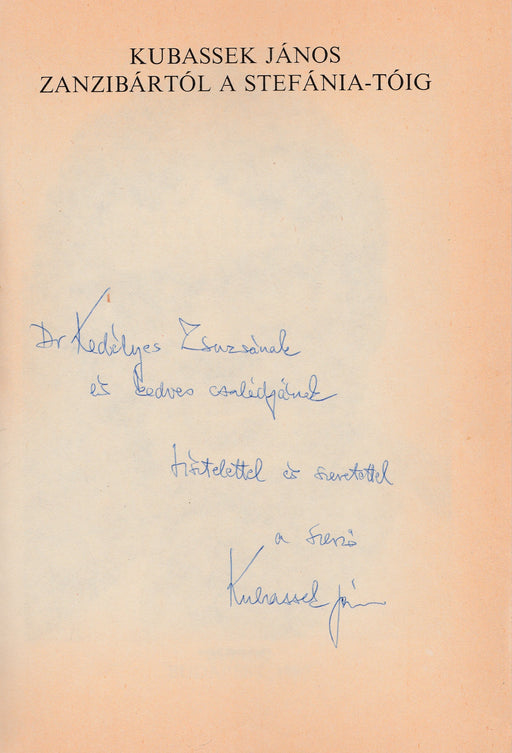 KUBASSEK JÁNOS
ZANZIBÁRTÓL A STEFÁNIA-TÓIG
Dr Kedélyes Zsuzsának
és kedves családjának
tisztelettel és szeretettel
a szerző
Kubassek János